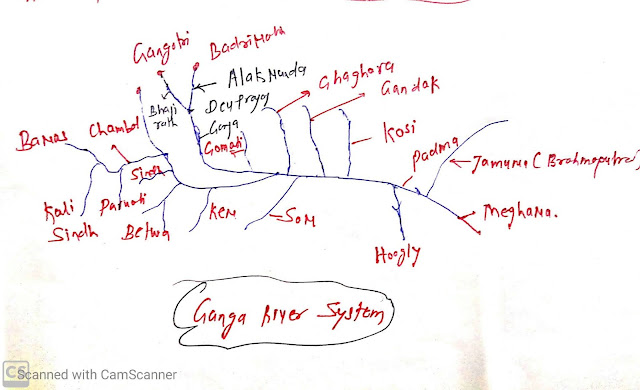 Gangotri
Badrinath
Alaknanda
Bhagi
rath
Devprayag
Ganga
Gomati
Ghaghara
Gandak
Kosi
Padma
Jamuna (Brahmaputra)
Meghana.
Banas
Chambal
Sindh
Kali
Sindh
Parvati
Betwa
Ken
Son
Hoogly
Ganga River System
CS
Scanned with CamScanner